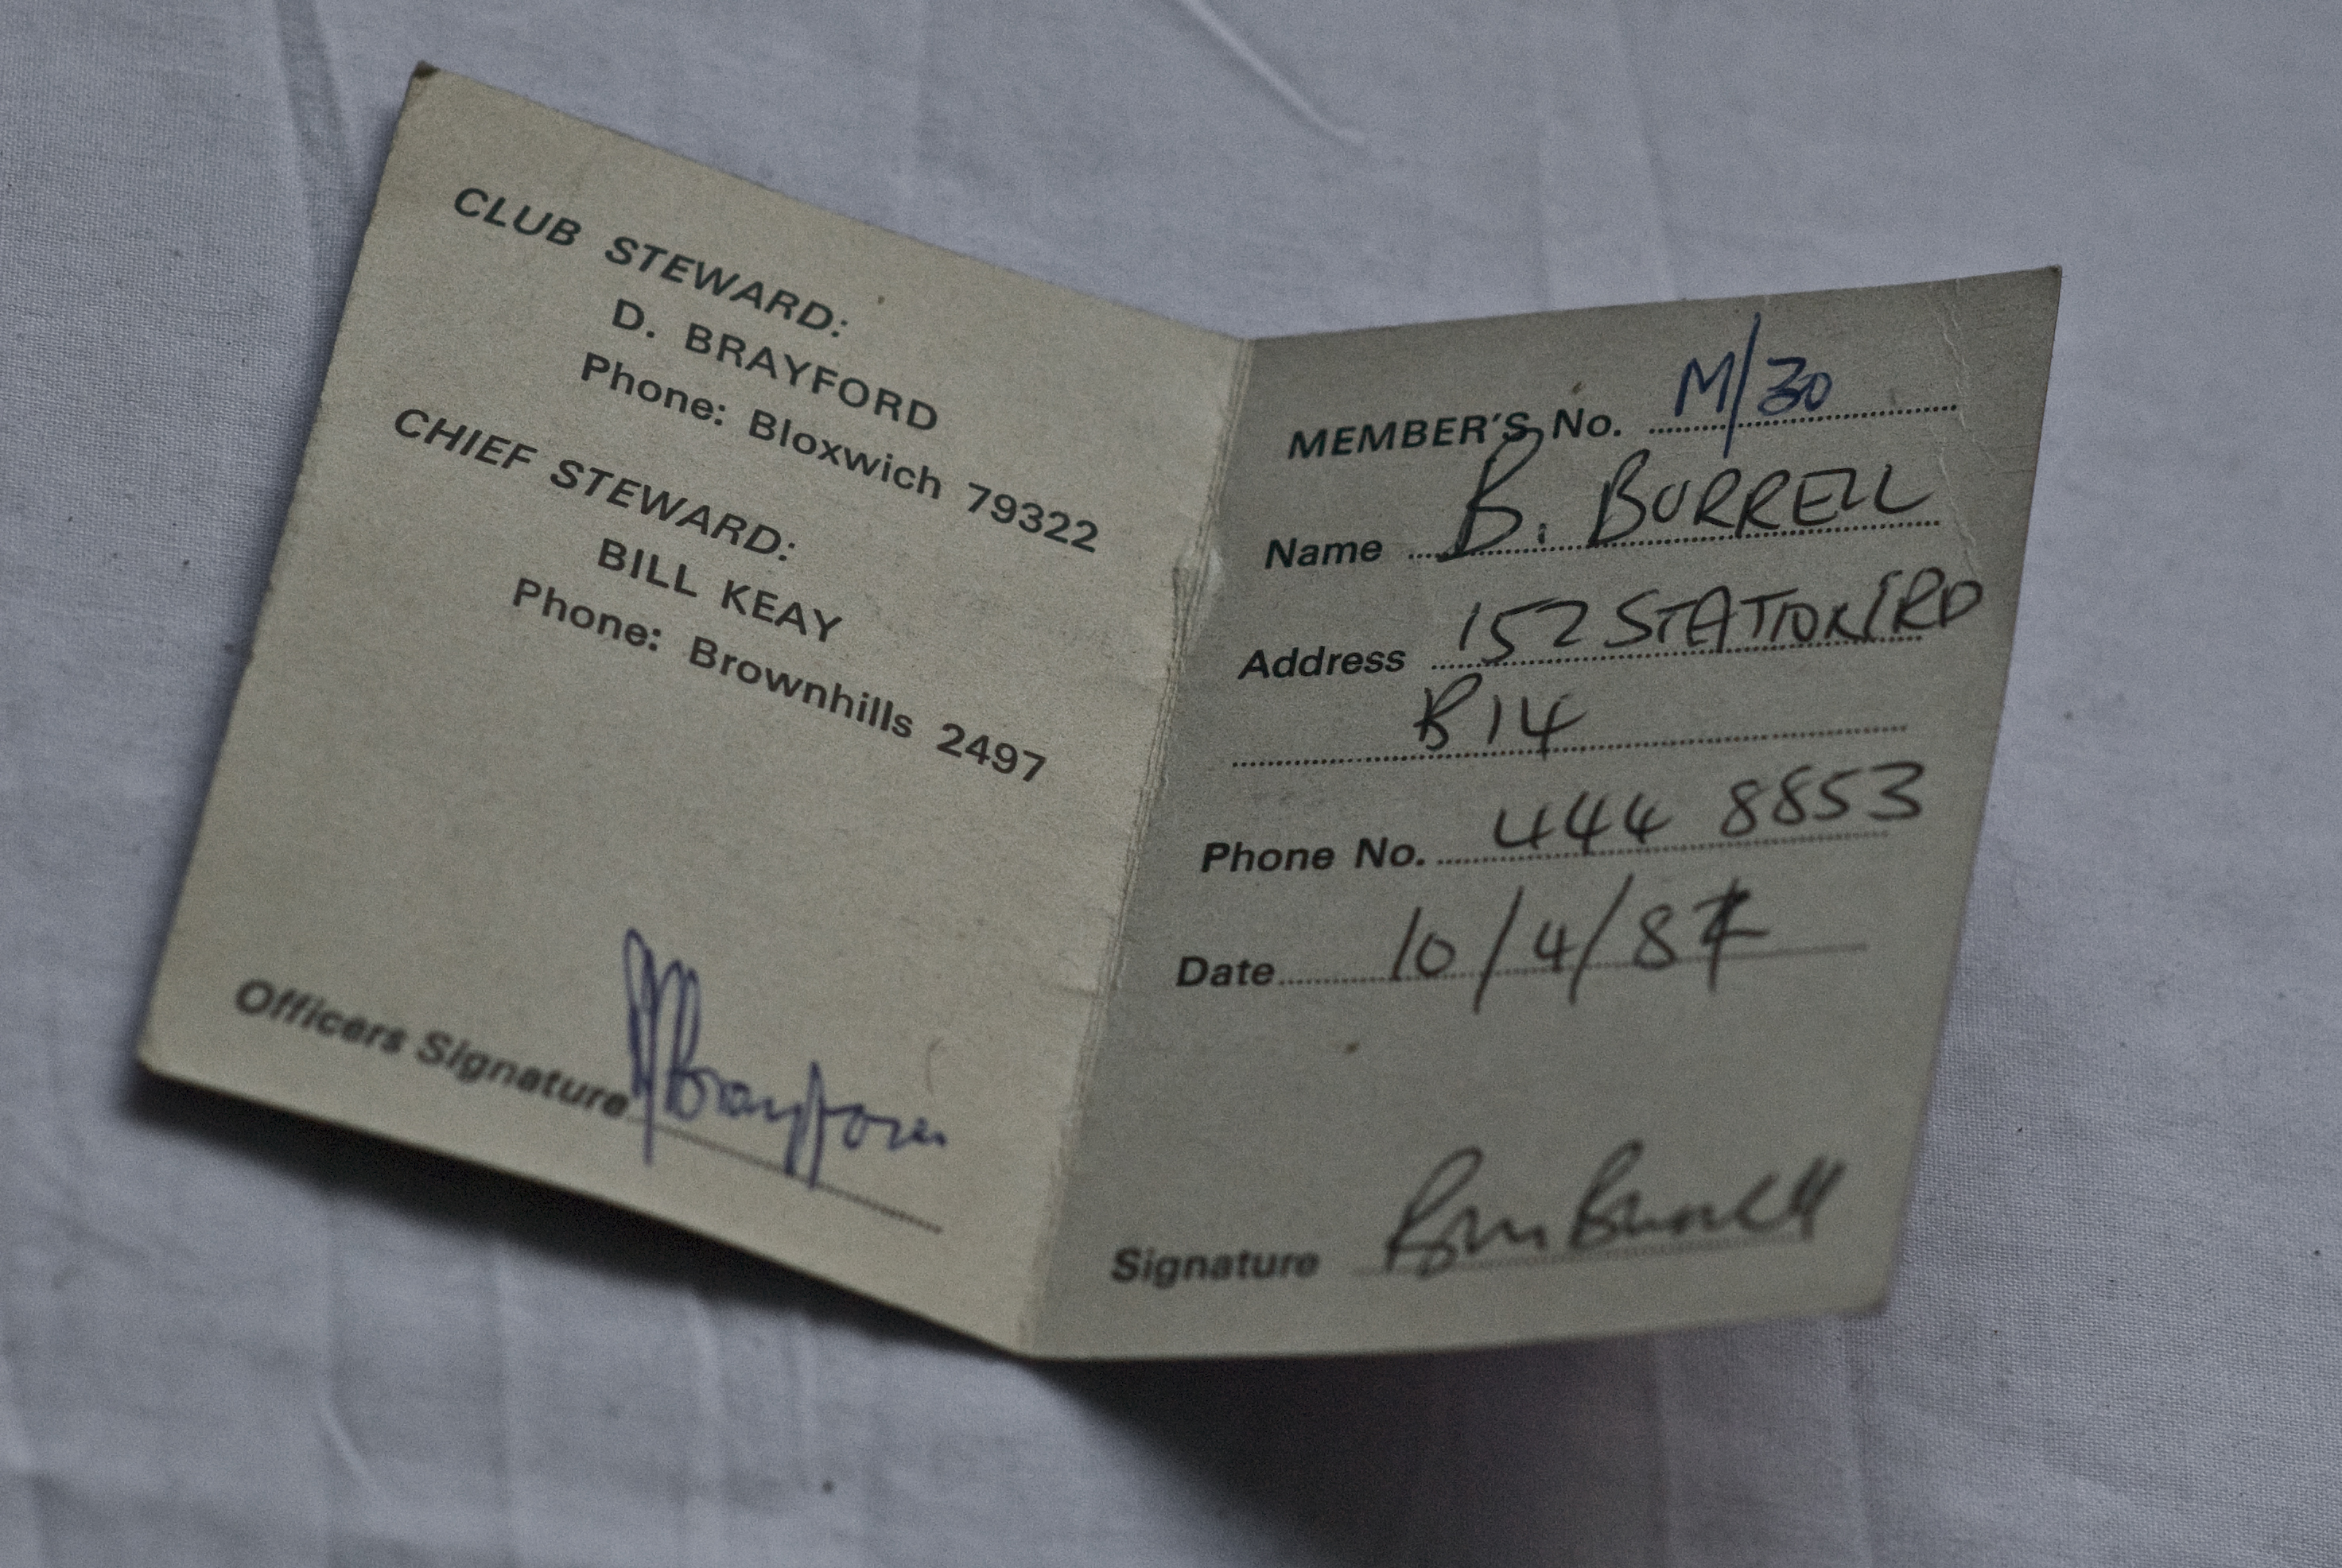 CLUB STEWARD:
D. BRAYFORD
Phone: Bloxwich 79322
CHIEF STEWARD:
BILL KEAY
Phone: Brownhills 2497
Officers Signature
MEMBER'S No. M/30
Name B. BURRELL
Address 152 STATION RD
B14
Phone No. 444 8853
Date 10/4/87
Signature